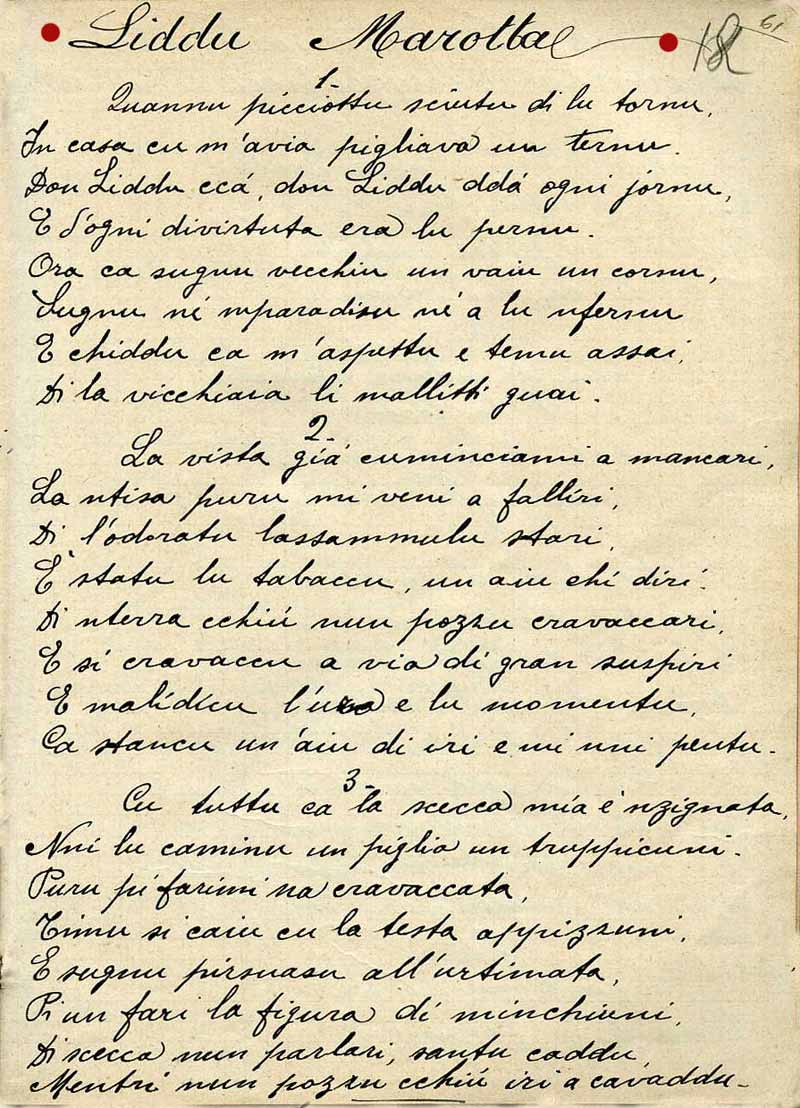 Liddu Marotta
18
61
1-
Quannu picciottu sciutu di lu tornu,
In casa cu m'avia pigliava un ternu.
Don Liddu ccá, don Liddu ddá ogni jornu,
E d'ogni divirtuta era lu pernu.
Ora ca sugnu vecchiu un vaiu un cornu,
Sugnu né mparadisu né a lu nfernu
E chiddu ca m'aspettu e temu assai,
Di la vicchiaia li mallitti guai.
2-
La vista giá cuminciami a mancari,
La ntisa puru mi veni a falliri,
Di l'odoratu lassammulu stari,
E' statu lu tabaccu, un aiu chi diri.
Di nterra cchiú nun pozzu cravaccari,
E si cravaccu a via di gran suspiri
E malidicu l'ura e lu momentu,
Ca stancu un'aiu di iri e mi nni pentu.
3-
Cu tuttu ca la scecca mia é nzignata,
Nni lu caminu un piglia un truppicuni.
Puru pi farimi na cravaccata,
Timu si caiu cu la testa appizzuni,
E sugnu pirsuasu all'urtimata,
Pi un fari la figura di minchiuni,
Di scecca nun parlari, santu coddu,
Mentri nun pozzu cchiú iri a cavaddu-